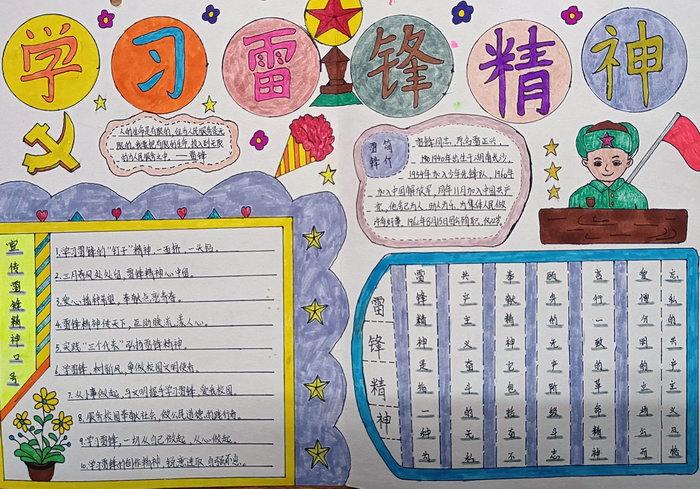 学习雷锋精神
人的生命是有限的,但为人民服务是无
限的,我要把有限的生命,投入到无限
的为人民服务之中。——雷锋
雷锋简介
雷锋同志,原名雷正兴,
1940年出生于湖南长沙,
1954年加入少年先锋队,1960年
加入中国解放军,同年11月加入中国共产
党,他舍己为人、助人为乐,为集体人民做
许多好事,1962年8月15日因公殉职,仅22岁
宣传雷锋精神口号
1.学习雷锋的“钉子”精神,一面挤,一头钻。
2.三月春风处处留,雷锋精神心中留。
3.爱心播种希望,奉献点亮青春。
4.雷锋精神传天下,互助暖流漾人心。
5.实践“三个代表”弘扬雷锋精神。
6.学雷锋,树新风,争做校园文明使者。
7.从小事做起,与文明握手学习雷锋,爱我校园。
8.服务校园奉献社会,做公民道德的践行者。
9.学习雷锋,一切从自己做起,从心做起。
10.学习雷锋的创业精神,锐意进取,自强不息。
雷锋精神
雷锋精神是指一种为
共产主义奋斗的无私
奉献精神它包括
的无产阶级斗志
言行一致的革命精神
爱憎分明的
忘私的共产主义风格